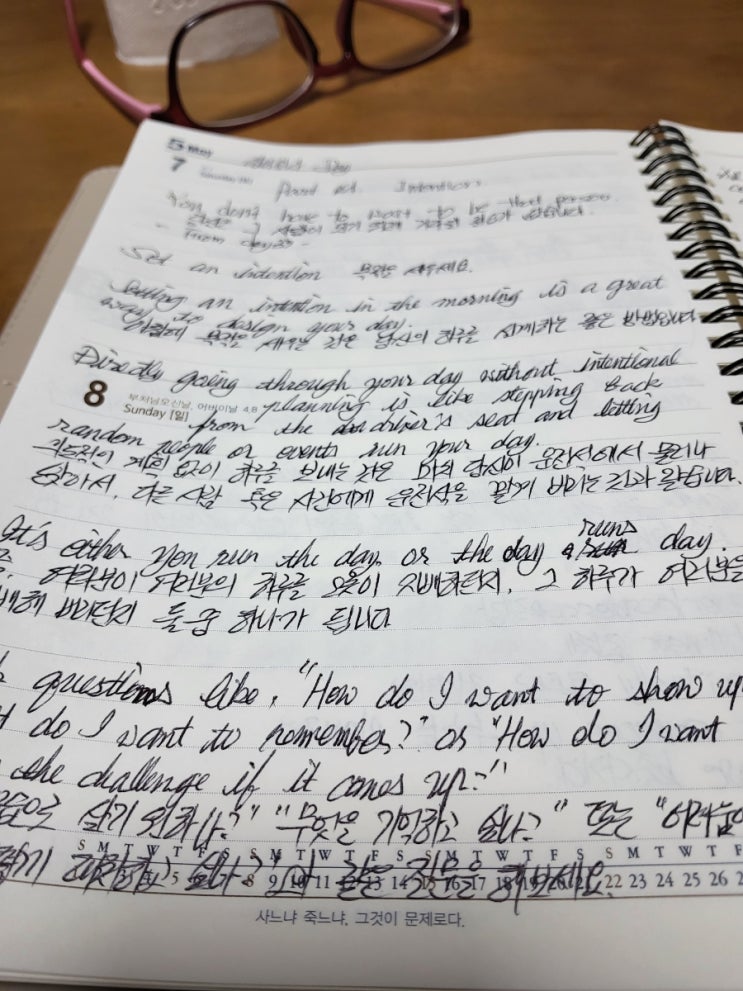 5 May
7
Point ed. Intention
You don't have to want to be that person.
Set an intention 목적을 세우세요.
Setting an intention in the morning is a great
way to design your day.
아침에 목적을 세우는 것은 당신의 하루를 시계하는 좋은 방법입니다
Directly going through your day without intentional
8 부처님오신날, 어버이날 4.8 planning is like stepping back
Sunday [일] from the driver's seat and letting
random people or events run your day.
계획 없이 하루를 보내는 것은 마치 당신이 운전석에서 물러나
앉아서, 다른 사람 혹은 사건에게 운전석을 맡겨 버리는 것과 같습니다.
It's either you run the day or the day runs day.
여러분이 여러분의 하루를 온전히 지배하든지, 그 하루가 여러분을
버리든지 둘 중 하나가 됩니다
questions like, "How do I want to show up
do I want to remember?" or "How do I want
the challenge if it comes up?"
살기 원하나?" "무엇을 기억하고 싶나?" 또는 "어려움이
S M T W T F S S M T W T F S S M T W T F S S M T W T F
5 8 9 10 11 12 13 14 15 16 17 18 19 20 21 22 23 24 25 26
사느냐 죽느냐, 그것이 문제로다.